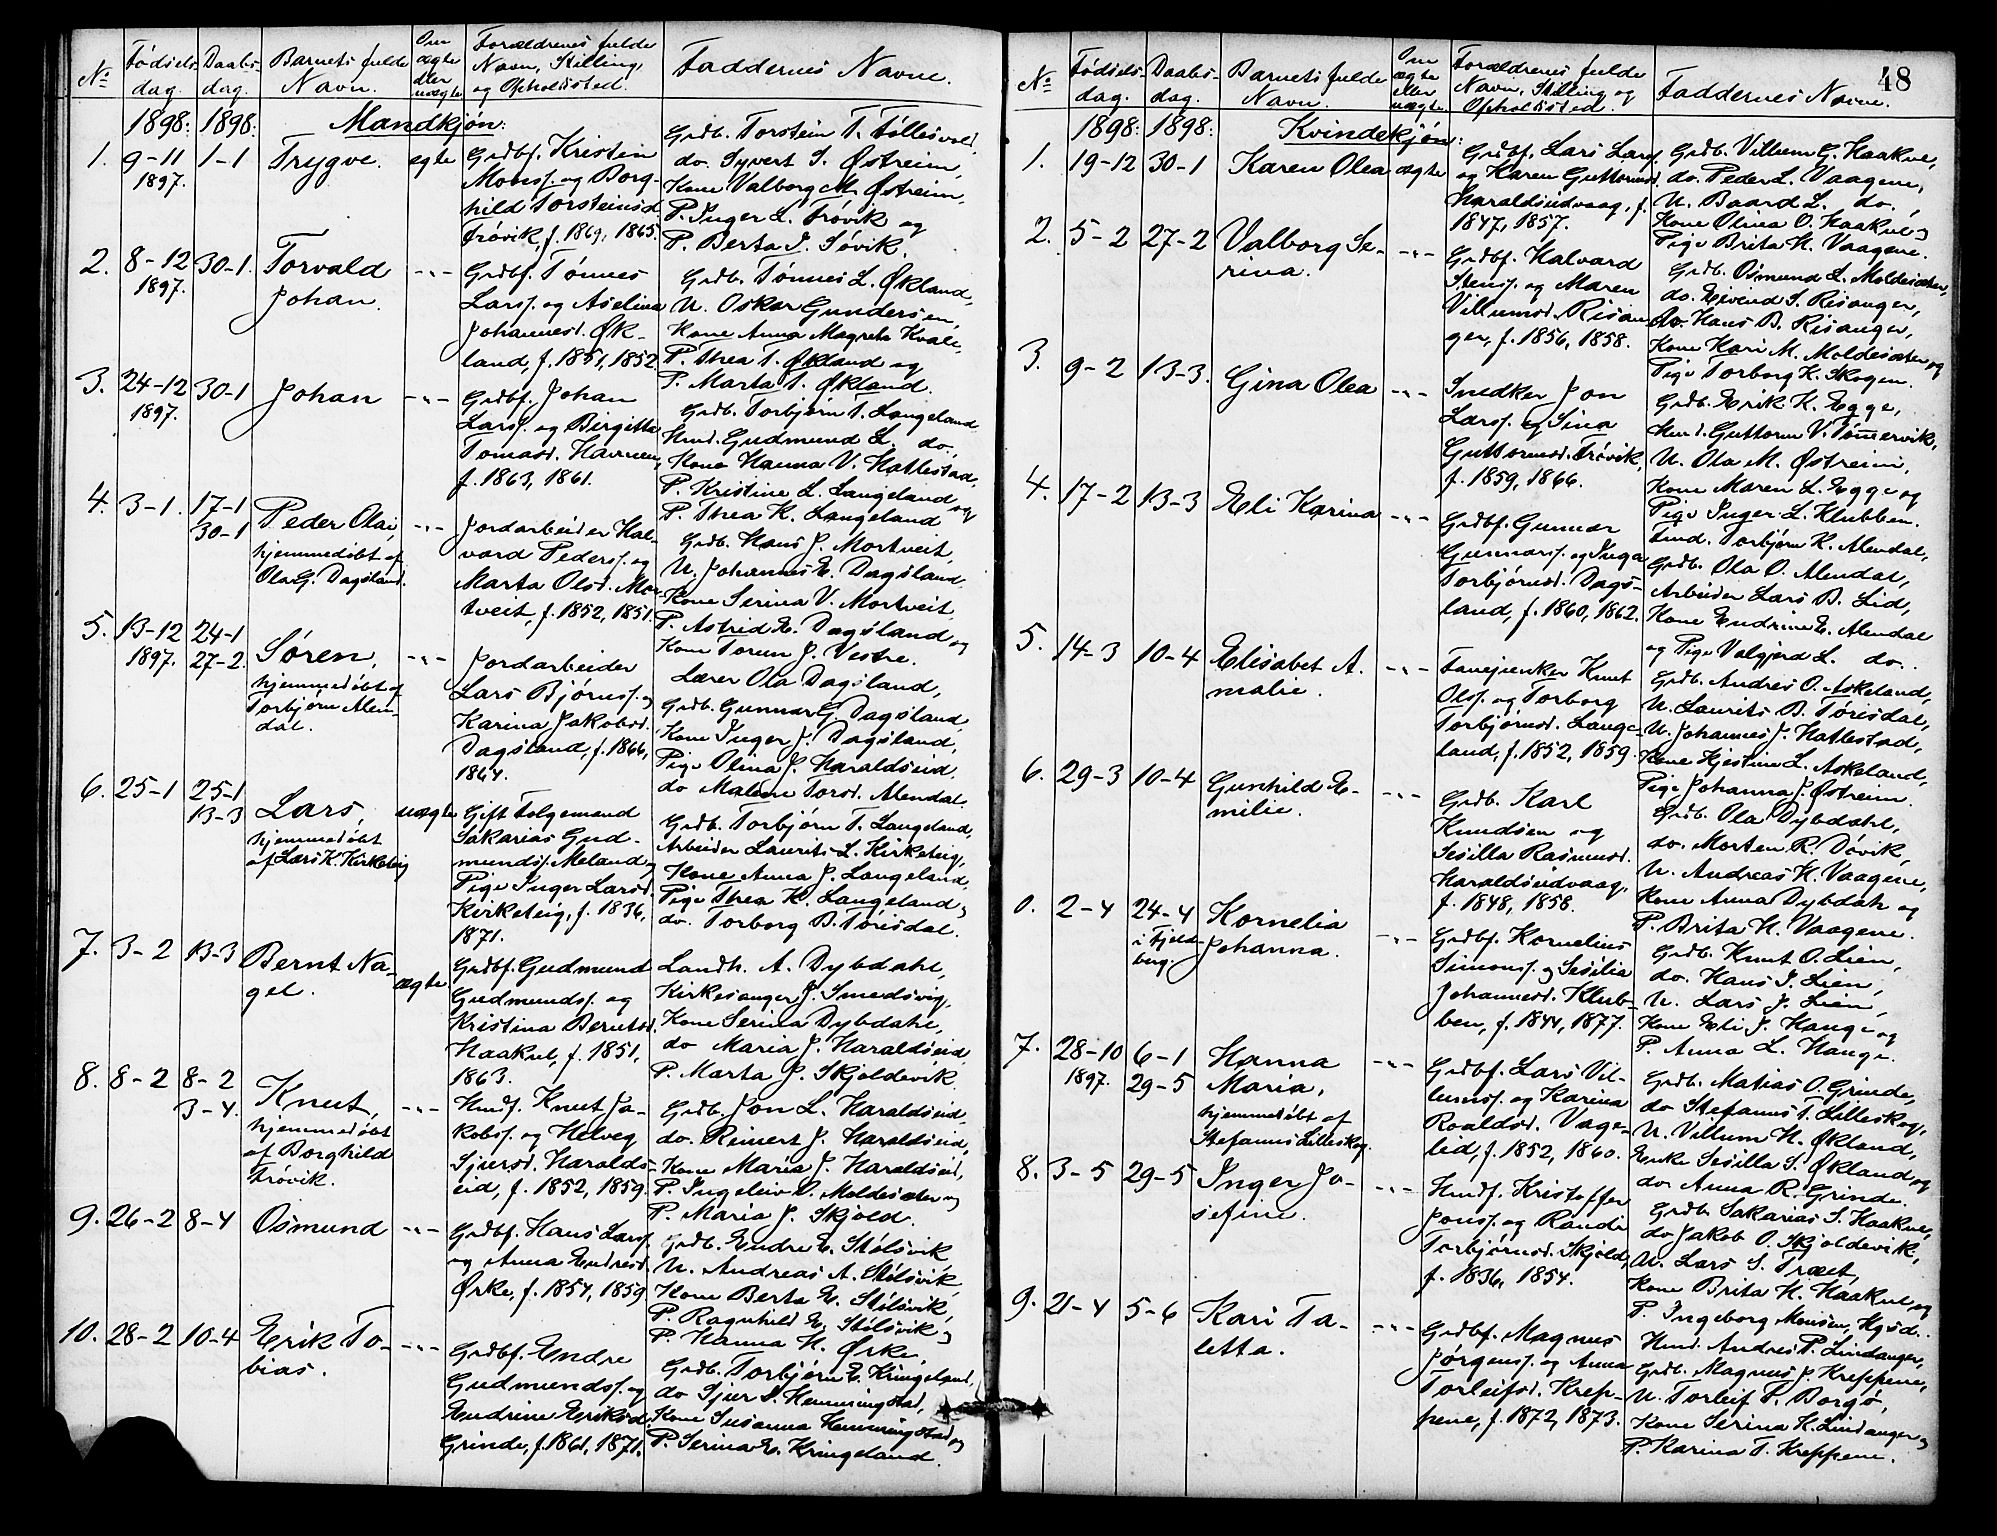 No
Fødsels-
dag.
Daabs-
dag.
Barnets fulde
Navn.
Om
ægte
eller
uægte
Forældrenes fulde
Navn, Stilling,
og Opholdssted.
Faddernes Navne.
1898: 1898:
Mandkjøn:
1. 9-11 1-1 Trygve. ægte
1897.
Grdbf. Kristen
Monss. og Borg-
hild Torsteinsd.
Frøvik, f. 1869, 1865.
Grdb. Torstein T. Føllesvold,
do. Syvert S. Østreim,
Kone Valborg M. Østreim,
P. Inger L. Frøvik og
P. Berta J. Søvik.
2. 8-12 30-1. Torvald -"-
1897. Johan.
Grdbf. Tønnes
Larss. og Aselina
Johannesd. Øk-
land, f. 1851, 1852.
Grdb. Tønnes L. Økland,
U. Oskar Gundersen,
Kone Anna Magreta Kvale,
P. Thea T. Økland og
P. Marta T. Økland.
3. 24-12 30-1 Johan -"-
1897.
Grdbf. Johan
Larss. og Birgitte
Tomasd. Havnen,
f. 1863, 1861.
Grdb. Torbjørn T. Langeland,
Hmd. Gudmund L. do.,
Kone Hanna V. Hattestad,
P. Kristine L. Langeland og
P. Thea K. Langeland
4. 3-1. 17-1 Peder Olai, -"-
30-1
hjemmedøbt af
Ola G. Dagsland.
Jordarbeider Hal-
vard Peders. og
Marta Olsd. Mor-
tveit, f. 1852, 1851.
Grdb. Hans J. Mortveit,
U. Johannes E. Dagsland,
Kone Serina V. Mortveit,
P. Astrid E. Dagsland og
Kone Torun J. Vestre.
5. 13-12 24-1 Søren, -"-
1897. 27-2.
hjemmedøbt af
Torbjørn Alen-
dal.
Jordarbeider
Lars Bjørnss. og
Karina Jakobsd.
Dagsland, f. 1866,
1864.
Lærer Ola Dagsland,
Grdb. Gunnar G. Dagsland,
Kone Inger J. Dagsland,
Pige Olina J. Haraldseid.
do Malene Torsd. Alendal.
6. 25-1 25-1 Lars, uægte
13-3
hjemmedøbt
af Lars K. Kirketeig
Gift Folgemand
Sakarias Gud-
munds. Meland og
Pige Inger Larsd.
Kirketeig, f. 1836,
1871.
Grdb. Torbjørn T. Langeland,
Arbeider Laurits L. Kirketeig,
Kone Anna J. Langeland,
Pige Thea K. Langeland og
do. Torborg B. Tørisdal.
7. 3-2 13-3 Bernt Na- ægte
gel.
Grdbf. Gudmund
Gudmundss. og
Kristina Berntsd.
Haakul, f. 1851,
1863.
Landh. A. Dybdahl,
Kirkesanger J. Smedsvig,
Kone Serina Dybdahl,
do Maria J. Haraldseid
P. Marta J. Skjoldevik.
8. 8-2 8-2 Knut, -"-
3-4.
hjemmedøbt
af Borghild
Frøvik.
Hmdf. Knut Ja-
kobss. og Helveg
Sjursd. Haralds-
eid, f. 1852, 1859.
Grdb. Jon L. Haraldseid,
do. Reinert J. Haraldseid,
Kone Maria J. Haraldseid,
P. Ingeleiv O. Moldesæter og
P. Maria J. Skjold.
9. 26-2 8-4 Osmund -"-
Grdbf. Hans Larss.
og Anna Endresd.
Ørke, f. 1854, 1859
Grdb. Endre E. Stølsvik,
U. Andreas A. Stølsvik,
Kone Berta E. Stølsvik,
P. Ragnhild E. Stølsvik og
P. Hanna H. Ørke.
10. 28-2 10-4 Erik To- -"-
bias.
Grdbf. Endre
Gudmundss. og
Endrine Eriksd.
Grinde, f. 1861, 1871.
Grdb. Torbjørn E. Kringeland,
do Sjur S. Hemmingstad,
Kone Susanna Hemmingstad og
P. Serina E. Kringeland.
48
No
Fødsels-
dag.
Daabs-
dag.
Barnets fulde
Navn.
Om
ægte
eller
uægte
Forældrenes fulde
Navn, Stilling og
Opholdssted.
Faddernes Navne.
1898: 1898:
Kvindekjøn:
1. 19-12 30-1 Karen Olea ægte
Grdbf. Lars Larss.
og Karen Guttormsd.
Haraldseidvaag, f.
1847, 1857.
Grdb. Villum G. Haakul,
do. Peder L. Vaagene,
U. Baard L. do.,
Kone Olina O. Haakul og
Pige Brita H. Vaagene.
2. 5-2 27-2 Valborg Se- -"-
rina.
Grdbf. Halvard
Stenss. og Maren
Villumsd. Risan-
ger, f. 1856, 1858.
Grdb. Osmund L. Moldesæter,
do. Eivend S. Risanger,
do. Hans B. Risanger,
Kone Kari M. Moldesæter og
Pige Torborg K. Skogen.
3. 9-2 13-3. Gina Olea -"-
Snedker Jon
Larss. og Sina
Guttormsd. Frøvik,
f. 1859, 1866.
Grdb. Erik K. Egge,
Hmd. Guttorm V. Tømmervik,
U. Ola M. Østreim,
Kone Maren L. Egge og
Pige Inger L. Klubben.
4. 17-2 13-3 Eli Karina -"-
Grdbf. Gunnar
Gunnarss. og Inga
Torbjørnsd. Dags-
land, f. 1860, 1862.
Hmd. Torbjørn K. Alendal,
Grdb. Ola O. Alendal,
Arbeider Lars B. Lid,
Kone Endrine E. Alendal
og Pige Valgjerd L. do..
5. 14-3 10-4 Elisabet A- -"-
malie.
Fanejunker Knut
Olss. og Torborg
Torbjørnsd. Lange-
land, f. 1852, 1859.
Grdb. Andres O. Askeland,
U. Laurits B. Tørisdal,
U. Johannes J. Hattestad,
Kone Kjestine L. Askeland,
Pige Johanna J. Østreim.
6. 29-3 10-4 Gunhild E- -"-
milie.
Grdb. Karl
Knudsen og
Sesilla Rasmusd.
Haraldseidvaag,
f. 1848, 1858.
Grdb. Ola Dybdahl,
do. Morten R. Døvik,
U. Andreas H. Vaagene,
Kone Anna Dybdahl og
P. Brita H. Vaagene.
0. 2-4 24-4 Kornelia -"-
i Fjeld- Johanna.
berg.
Grdbf. Kornelius
Simonss. og Sesilia
Johannesd. Klub-
ben, f. 1844, 1877.
Grdb. Knut O. Lien,
do. Hans J. Lien,
U. Lars J. Lien,
Kone Eli J. Hauge og
P. Anna L. Hauge.
7. 28-10 6-1 Hanna -"-
1897. 29-5 Maria,
hjemmedøbt af
Stefanus Lilleskog.
Grdbf. Lars Vil-
lumss. og Karina
Roaldsd. Vage-
lid, f. 1852, 1860.
Grdb. Matias O. Grinde,
do Stefanus T. Lilleskog,
U. Villum H. Økland,
Enke Sesilla S. Økland og
do. Anna R. Grinde.
8. 3-5 29-5 Inger Jo- -"-
sefine.
Hmdf. Kristoffer
Jonss. og Randi
Torbjørnsd. Skjold,
f. 1836, 1854.
Grdb. Sakarias S. Haakul,
do Jakob O. Skjoldevik,
U. Lars S. Træet,
Kone Brita H. Haakul og
P. Ingeborg Monsen, Hgsd..
9. 21-4 5-6 Kari Ta- -"-
letta.
Grdbf. Magnus
Jørgenss. og Anna
Torleifsd. Krep-
pene, f. 1872, 1873.
Hmd. Andres P. Lindanger,
Grdb. Magnus J. Kreppene,
U. Torleif P. Borgø,
Kone Serina K. Lindanger og
P. Karina T. Kreppene.